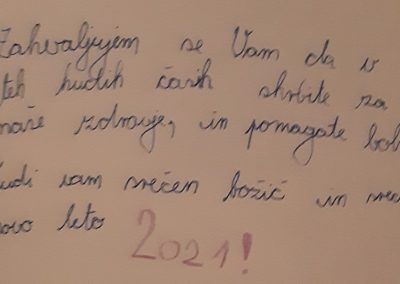 Zahvaljujem se Vam da v
teh hudih časih skrbite za
naše zdravje, in pomagate
tudi vam srečen božič in
novo leto
2021!